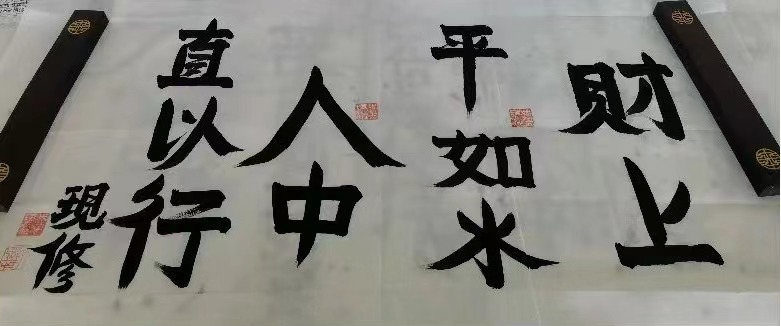 财上
平如水
人中
直以行
现修